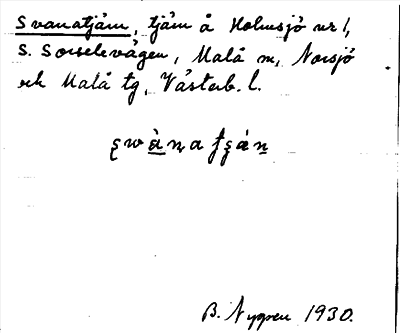 Svanatjärn, tjärn å Holmsjö nr 1,
S. Sorselevägen, Malå sn, Norsjö
och Malå tg, Västerb. l.
B. Nygren 1930.